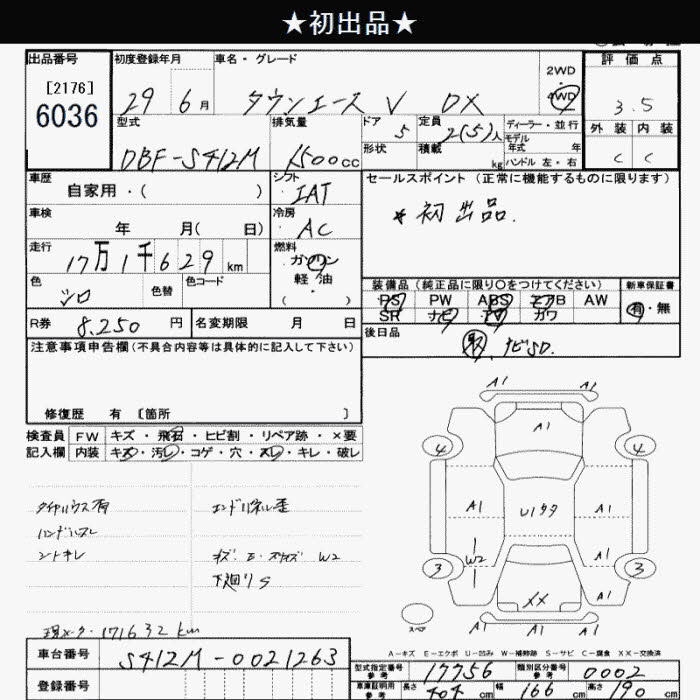 ★初出品★
出品番号 初度登録年月 車名・グレード 2WD・4WD 評価点
[2176]
6036
29 6月 タウンエース V DX 3.5
型式 排気量 ドア 5 定員 2(5)人 ディーラー・並行 外装 内装
DBF-S412M 1500cc 形状 積載 kg モデル年式 年 ハンドル 左・右 C C
車歴 自家用・( ) シフト IAT セールスポイント (正常に機能するものに限ります)
車検 年 月( 日) 冷房 AC *初出品.
走行 17万1千629km 燃料 ガソリン
軽・油
・( )
色 シロ 色替 色コード 装備品 (純正品に限り○をつけてください) 新車保証書
PS PW ABS エアB AW 有・無
SR ナビ TV カワ
R券 8.250円 名変期限 月 日 後日品
取 ナビSD.
注意事項申告欄 (不具合内容等は具体的に記入して下さい)
修復歴 有 [箇所 ]
検査員 FW キズ・飛石・ヒビ割・リペア跡・×要
記入欄 内装 キズ・汚レ・コゲ・穴・スレ・キレ・破レ
エンドパネル歪
ハンドルスレ
シートキレ W2
下廻りS
現メーター171632km
A1 A1
A1
4 4
A1 U1 A1
W2 A1
3 3
A1 XX A1
A1 A1
スペア
A-キズ E-エクボ U-凹み W-補修跡 S-サビ C-腐食 XX-交換済
車台番号 S412M-0021263
型式指定番号 参考 17756 類別区分番号 参考 0002
登録番号
車庫証明用 参考 長さ 404cm 幅 166cm 高さ 190cm